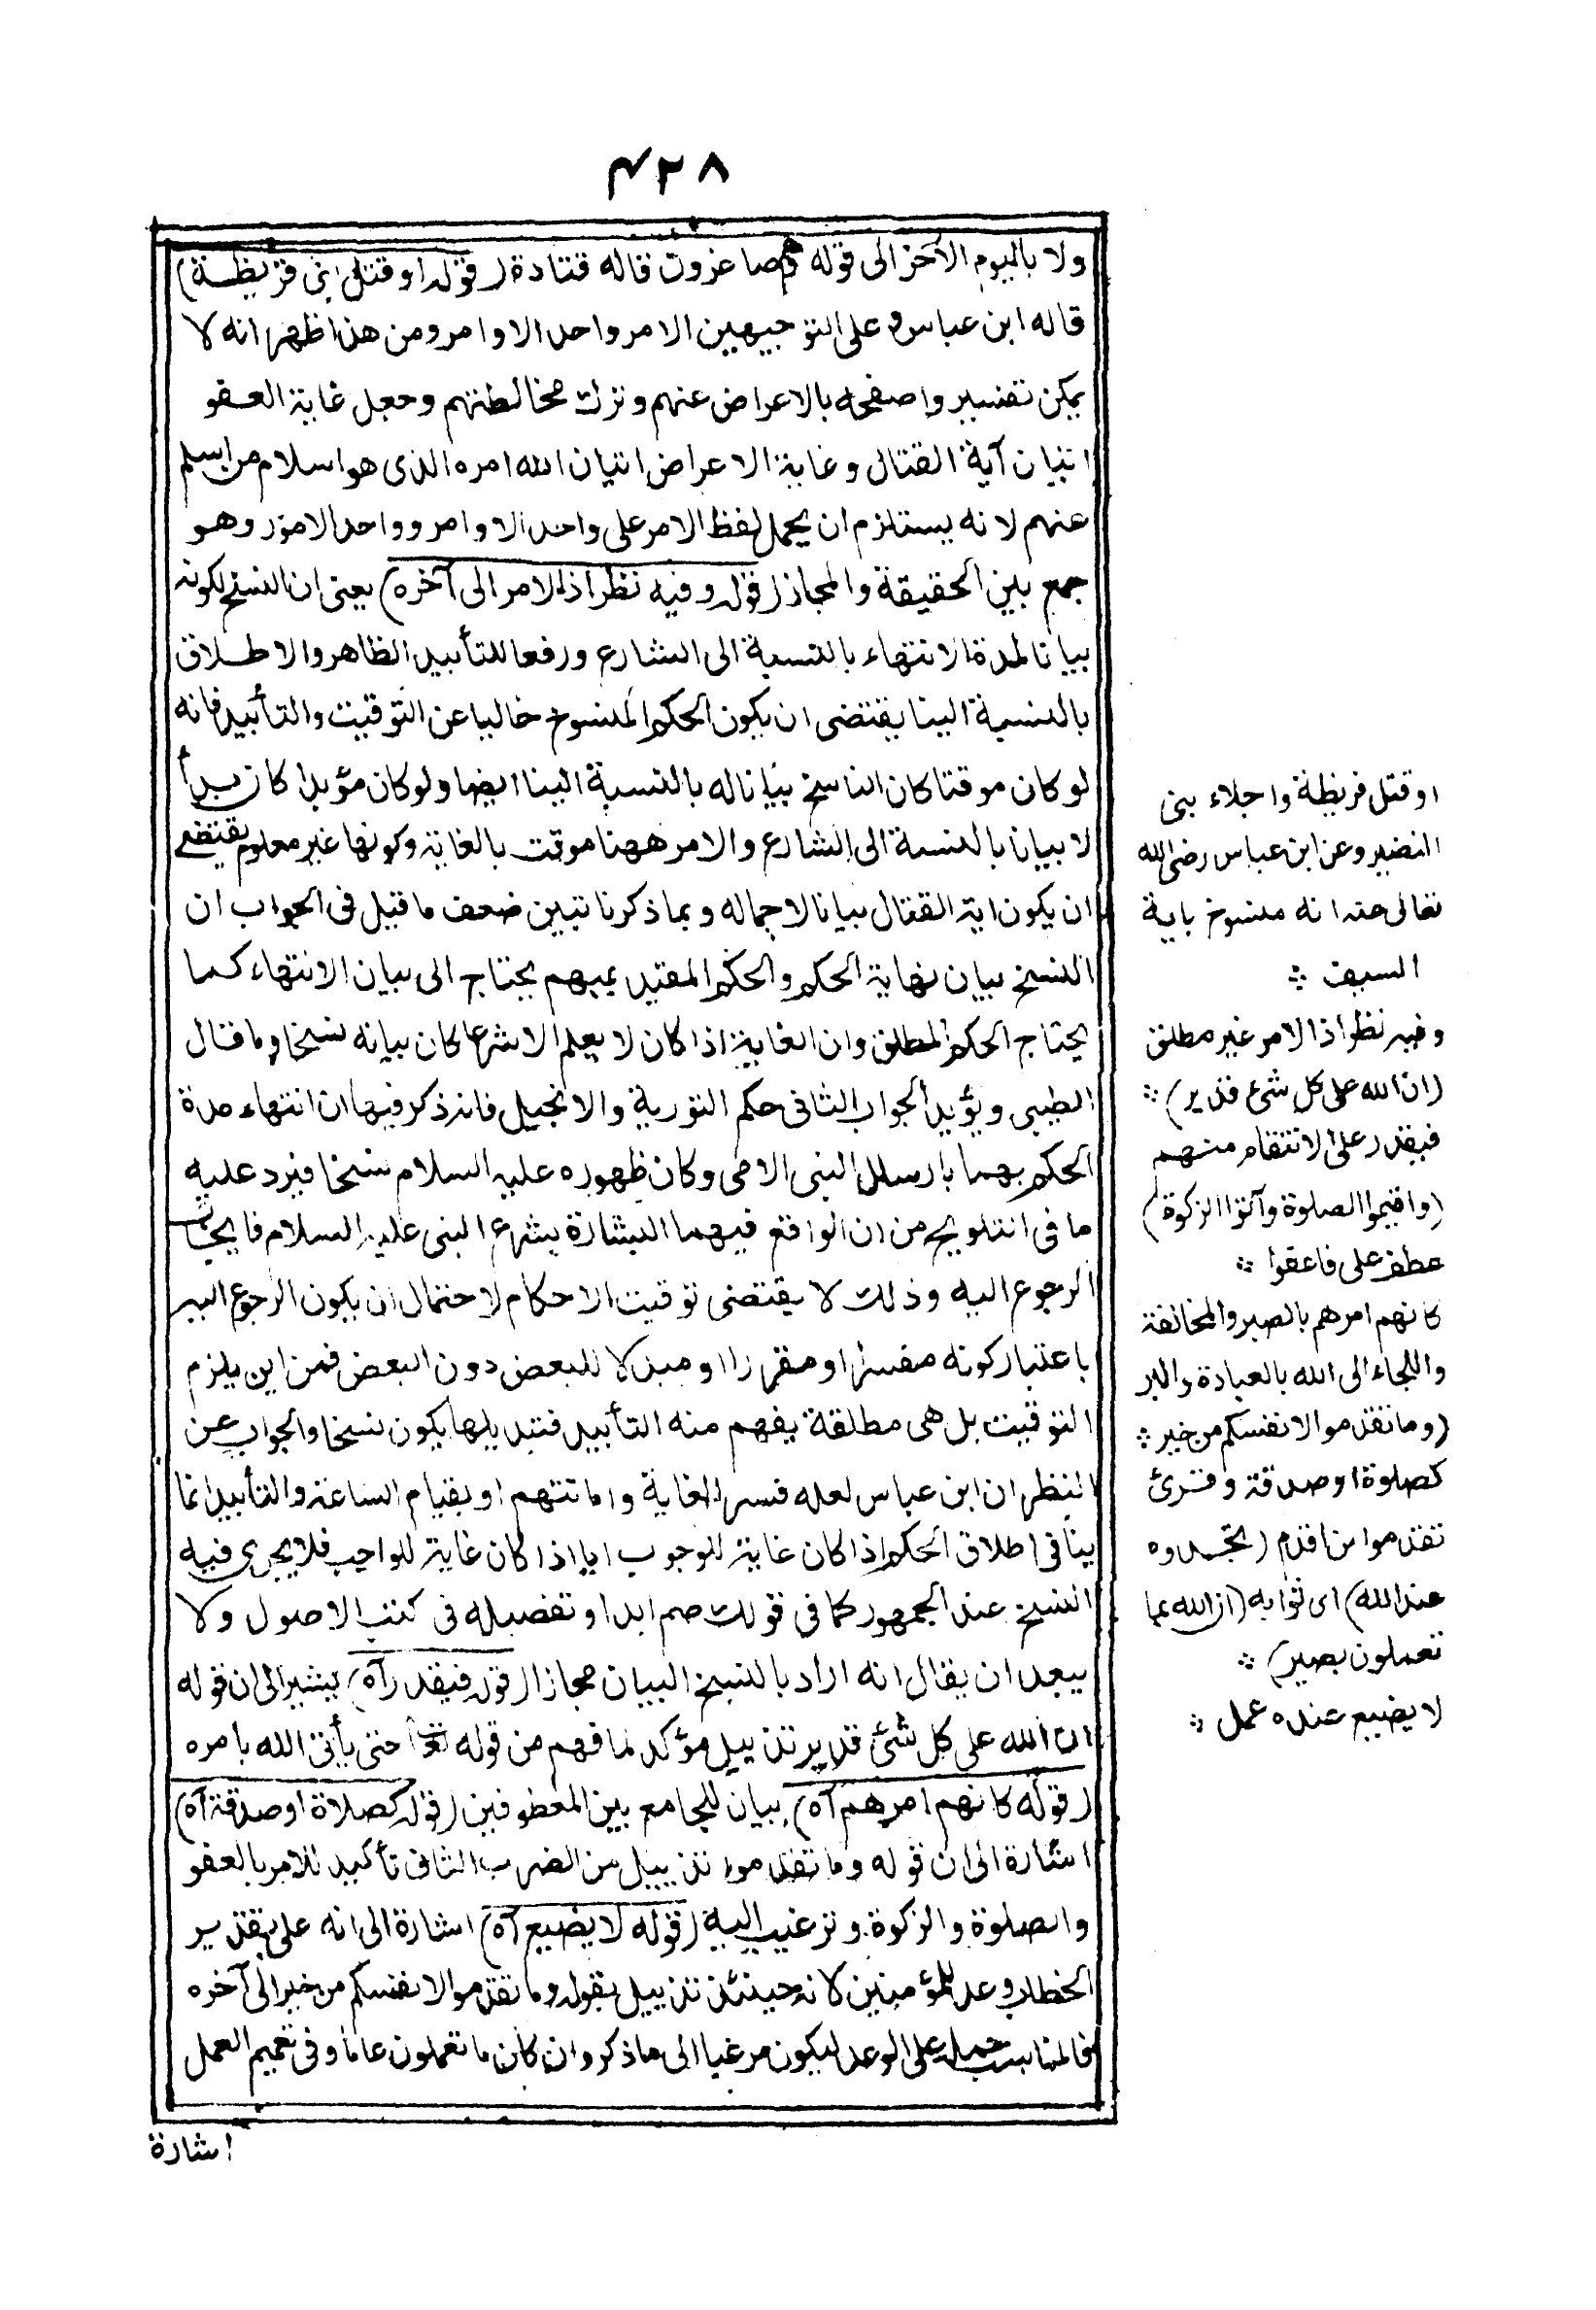 ۴۲۸
ولا باليوم الآخر الى قوله وهم صاغرون قاله قتادة (قوله او قتل بنى قريظة)
قاله ابن عباس و على التوجيهين الامر واحد الاوامر ومن هذا ظهر انه لا
يمكن تفسير واصفحوا بالاعراض عنهم وترك مخالطتهم وجعل غاية العفو
اتيان آية القتال وغاية الاعراض اتيان الله امره الذى هو اسلام من اسلم
عنهم لانه يستلزم ان يحمل لفظ الامر على واحد الاوامر وواحد الامور وهو
جمع بين الحقيقة والمجاز (قوله وفيه نظر اذ الامر الى آخره) يعنى ان النسخ لكونه
بيانا لمدة الانتهاء بالنسبة الى الشارع ورفعا للتأبيد الظاهر والاطلاق
بالنسبة الينا يقتضى ان يكون الحكم المنسوخ خاليا عن التوقيت والتأبيد فانه
لو كان موقتا كان الناسخ بيانا له بالنسبة الينا ايضا ولو كان مؤبدا كان بدأ
لا بيانا بالنسبة الى الشارع والامر ههنا موقت بالغاية وكونها غير معلوم يقتضى
ان يكون اية القتال بيانا لاجماله وبما ذكرنا تبين ضعف ما قيل فى الجواب ان
النسخ بيان نهاية الحكم والحكم المقيد بمبهم يحتاج الى بيان الانتهاء كما
يحتاج الحكم المطلق وان الغاية اذا كان لا يعلم الا شرعا كان بيانه نسخا وما قال
الطيبى ويؤيد الجواب الثانى حكم التورية والانجيل فانه ذكر فيها ان انتهاء مدة
الحكم بهما بارسال النبى الامى وكان ظهوره عليه السلام نسخا فيرد عليه
ما فى التلويح من ان الواقع فيهما البشارة بشرع النبى عليه السلام فايجاب
الرجوع اليه وذلك لا يقتضى توقيت الاحكام لاحتمال ان يكون الرجوع اليه
باعتبار كونه مفسرا او مقررا او مبدلا للبعض دون البعض فمن اين يلزم
التوقيت بل هى مطلقة يفهم منه التأبيد فتبديلها يكون نسخا والجواب عن
النظر ان ابن عباس لعله فسر الغاية واماتتهم او بقيام الساعة والتأبيد انما
ينافى اطلاق الحكم اذا كان غاية للوجوب اما اذا كان غاية للواجب فلا يجرى فيه
النسخ عند الجمهور كما فى قولك صم ابدا وتفصيله فى كتب الاصول ولا
يبعد ان يقال انه اراد بالنسخ البيان مجازا (قوله فيقدر آه) يشير الى ان قوله
ان الله على كل شئ قدير تذييل مؤكد لما فهم من قوله تعا حتى يأتى الله بامره
(قوله كانهم امرهم آه) بيان للجامع بين المعطوفين (قوله كصلاة او صدقة آه)
اشارة الى ان قوله وما تقدموا تذييل من الضرب الثانى تأكيد للامر بالعفو
والصلوة والزكوة وترغيب اليه (قوله لا يضيع آه) اشارة الى انه على تقدير
الخطاب وعد للمؤمنين لانه حينئذ تذييل بقوله وما تقدموا لانفسكم من خير الى آخره
فالمناسب حمله على الوعد ليكون مرغبا الى ما ذكر وان كان ما تعملون عاما وفى تعميم العمل
اشارة
او قتل قريظة واجلاء بنى
النضير وعن ابن عباس رضى الله
تعالى عنه انه منسوخ باية
السيف ؞
وفيه نظر اذ الامر غير مطلق
(ان الله على كل شئ قدير) ؞
فيقدر على الانتقام منهم
(واقيموا الصلوة وآتوا الزكوة)
عطف على فاعفوا ؞
كانهم امرهم بالصبر والمخالفة
واللجاء الى الله بالعبادة والبر
(وما تقدموا لانفسكم من خير ؞
كصلوة او صدقة وقرئ
تقدموا من اقدم (تجدوه
عند الله) اى ثوابه (ان الله بما
تعملون بصير) ؞
لا يضيع عنده عمل ؞